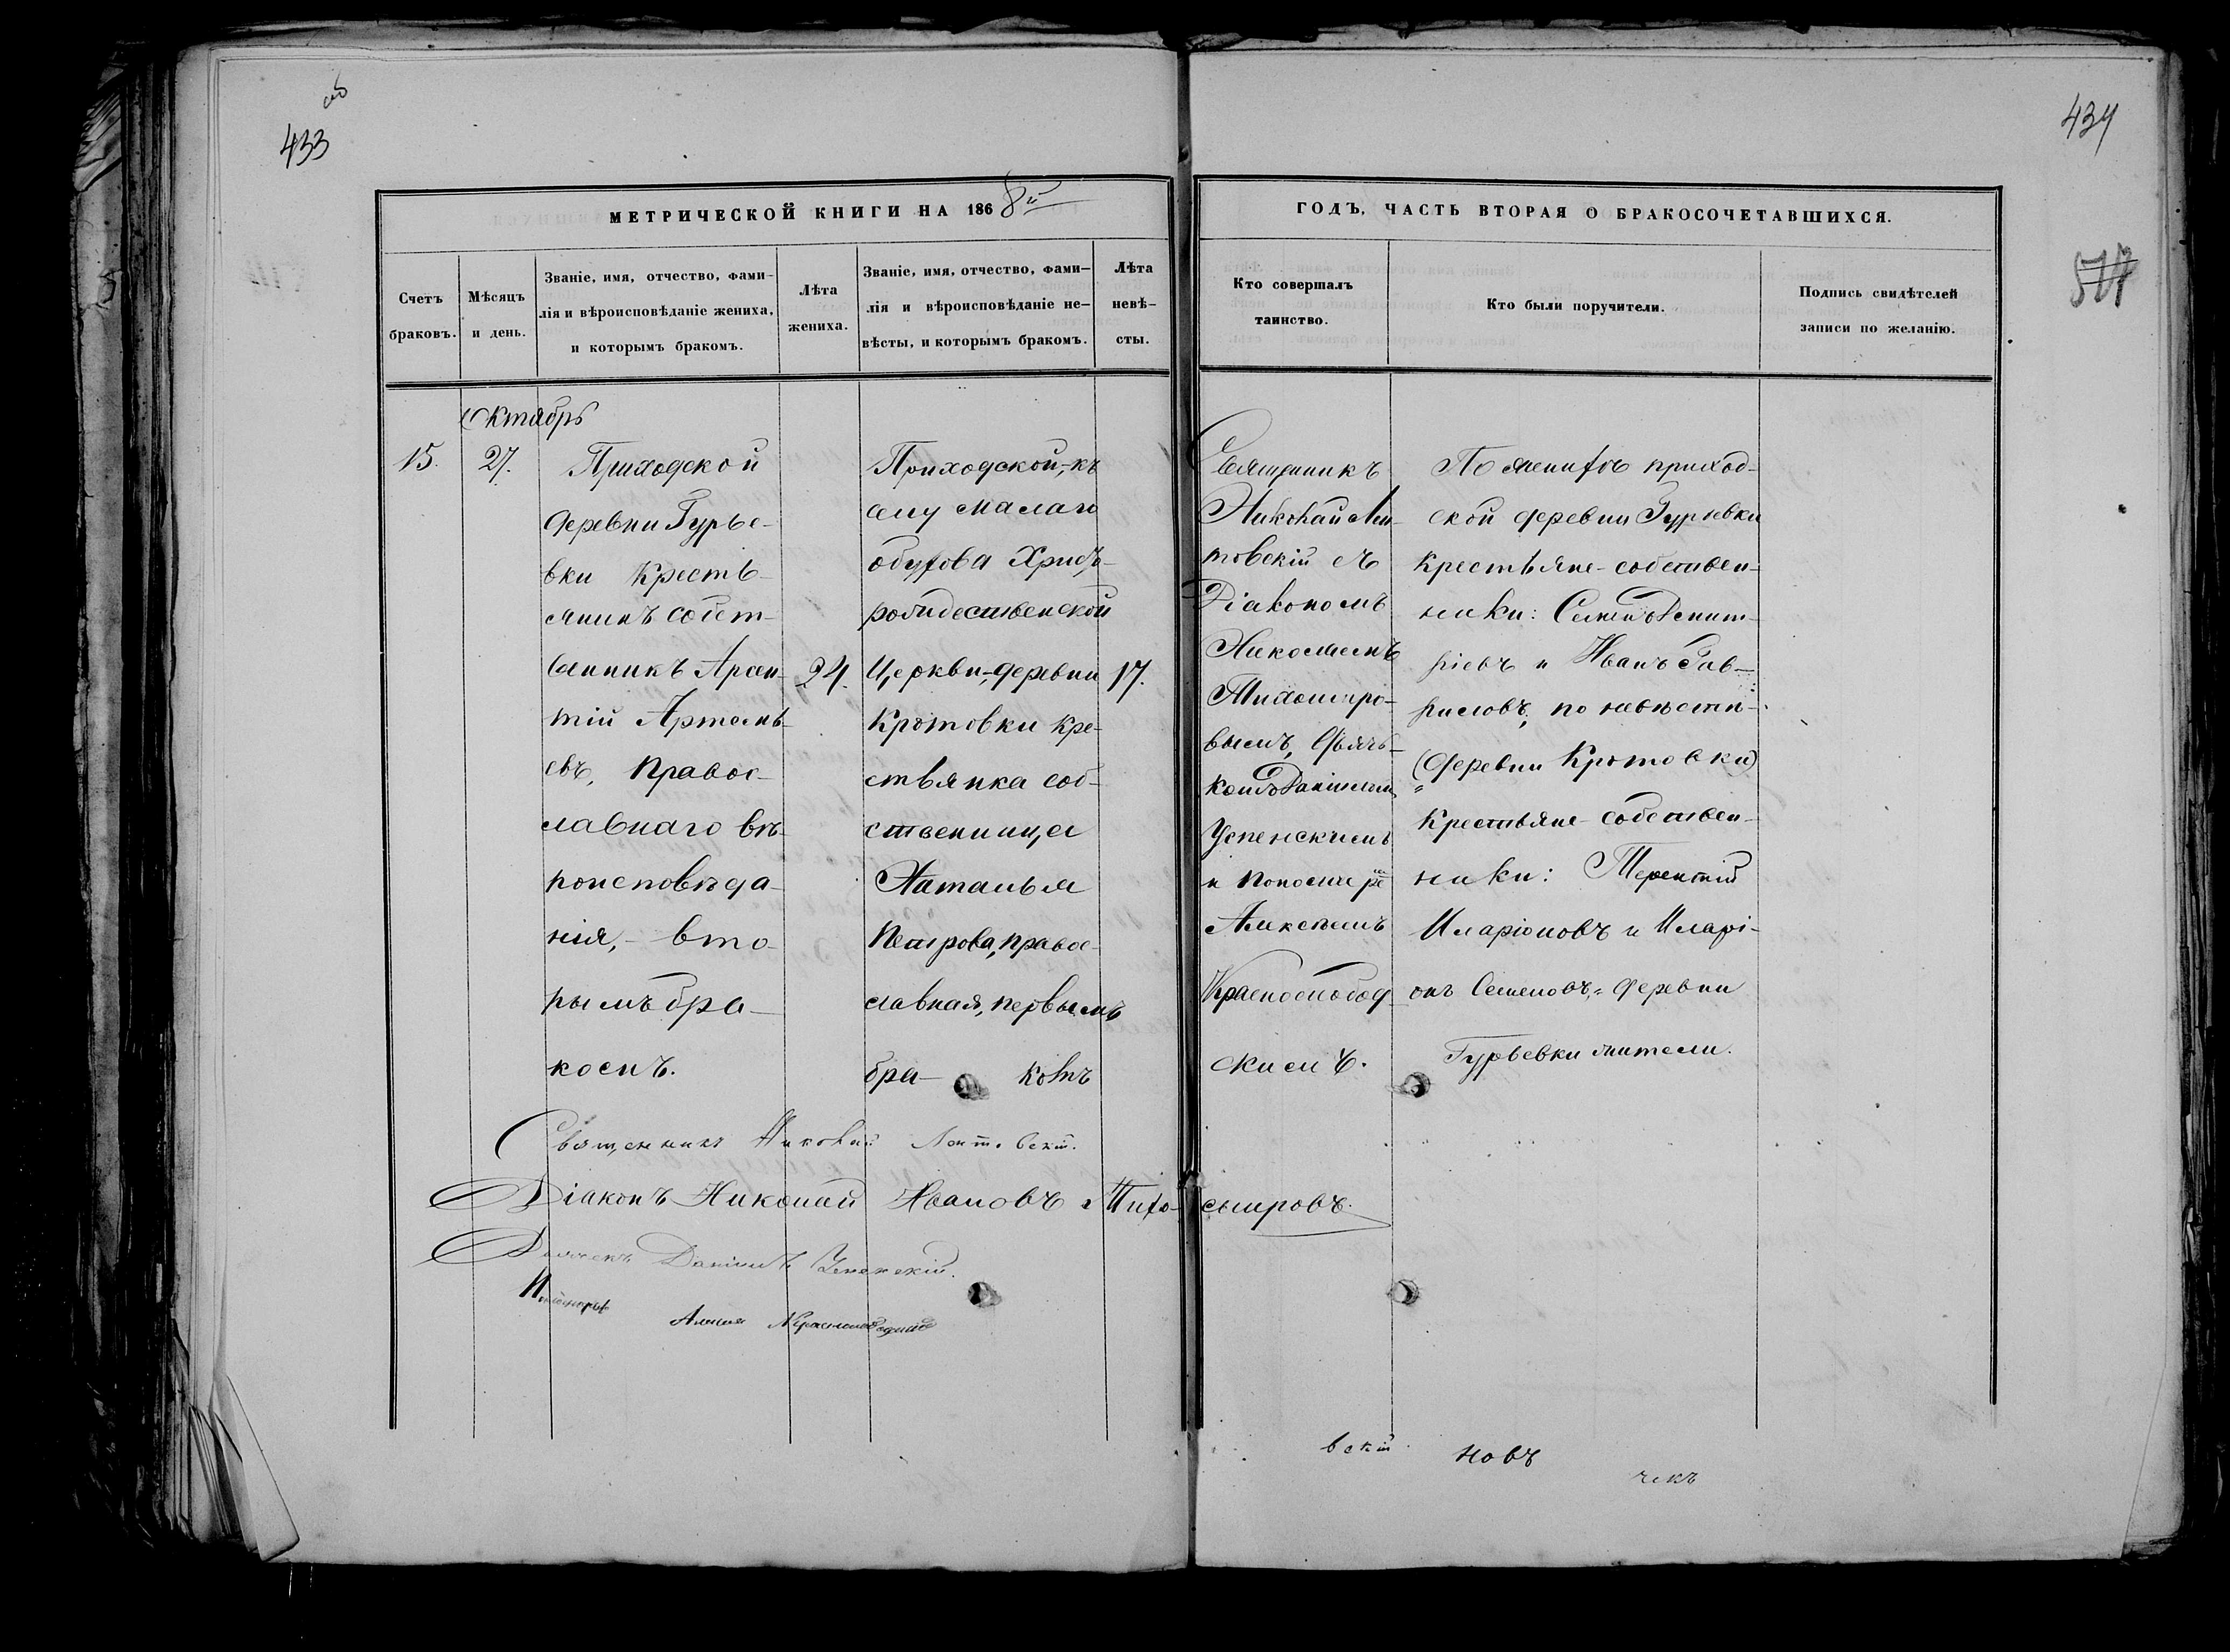 об
433
434
517
МЕТРИЧЕСКОЙ КНИГИ НА 1868й
ГОДЪ, ЧАСТЬ ВТОРАЯ О БРАКОСОЧЕТАВШИХСЯ.
Счетъ
браковъ.
Мѣсяцъ
и день.
Званіе, имя, отчество, фами-
лія и вѣроисповѣданіе жениха,
и которымъ бракомъ.
Лѣта
жениха.
Званіе, имя, отчество, фами-
лія и вѣроисповѣданіе не-
вѣсты, и которымъ бракомъ.
Лѣта
невѣ-
сты.
Кто совершалъ
таинство.
Кто были поручители.
Подпись свидѣтелей
записи по желанію.
Октябрь
15.
27.
Приходской
деревни Гурье-
вки кресть-
янинъ собст-
венникъ Арсен-
тій Артемь-
евъ, правос-
лавнаго вѣ-
роисповѣда-
нія, - вто-
рымъ бра-
комъ.
24.
Приходской, къ
селу малаго
обухова Христо-
рождественской
Церкви, деревни
Кротовки кре-
стьянка соб-
ственница
Наталья
Петрова, правос-
лавная, первымъ
бра- комъ
17.
Священникъ
Николай Лен-
товскій съ
Діакономъ
Николаемъ
Тихомиро-
вымъ, Дьяч-
комъ Даніиломъ
Успенскимъ
и Пономаре
Алексѣемъ
Краснослобод-
скимъ.
По женихѣ приход-
ской деревни Гурьевки
крестьяне-собствен-
ники: Семенъ Дмит-
ріевъ и Иванъ Гав-
риловъ; по невѣстѣ-
(деревни Кротовки)
крестьяне-собствен-
ники: Терентій
Иларіоновъ и Иларі-
онъ Семеновъ, деревни
Гурьевки жители.
Священникъ Николай Лентовскій.
Діаконъ Николай Ивановъ Тихо-
мировъ.
Дьячекъ Даніилъ Успенскій.
Пономарь
Алексѣй Краснослободскій
вскій
новъ
чекъ